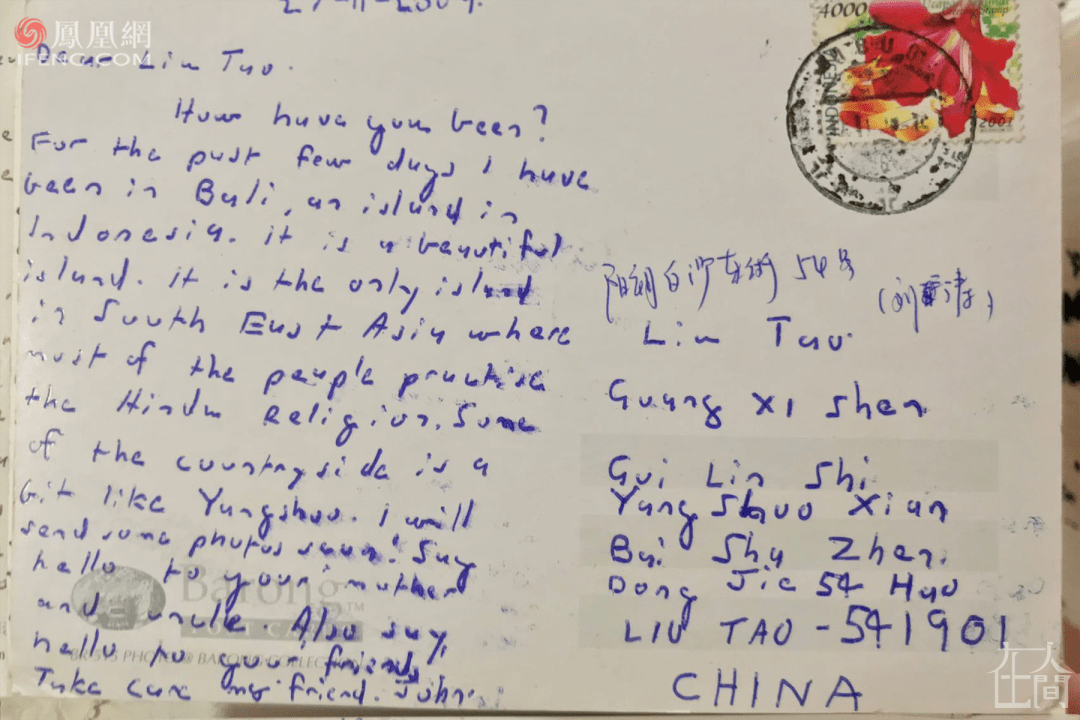 鳳凰網
IFENG.COM
Dear Liu Tao.
How have you been?
For the past few days I have
been in Bali, an island in
Indonesia. it is a beautiful
island. it is the only island
in South East Asia where
most of the people practise
the Hindu Religion. Some
of the countryside is a
bit like Yangshuo. i will
send some photos soon! Say
hello to your mother
and uncle. Also say,
hello to your friends,
Take care my friend. John.
4000
INDONESIA
2001
阳朔白沙东街 54号
Liu Tao.
Guang xi shen
Gui Lin Shi
Yang Shuo Xian
Bai Sha Zhen.
Dong Jie 54 Hao
LIU TAO - 541901
CHINA
Barong
POST CARD
PHOTO @ BARONG COLLECTION
在人間